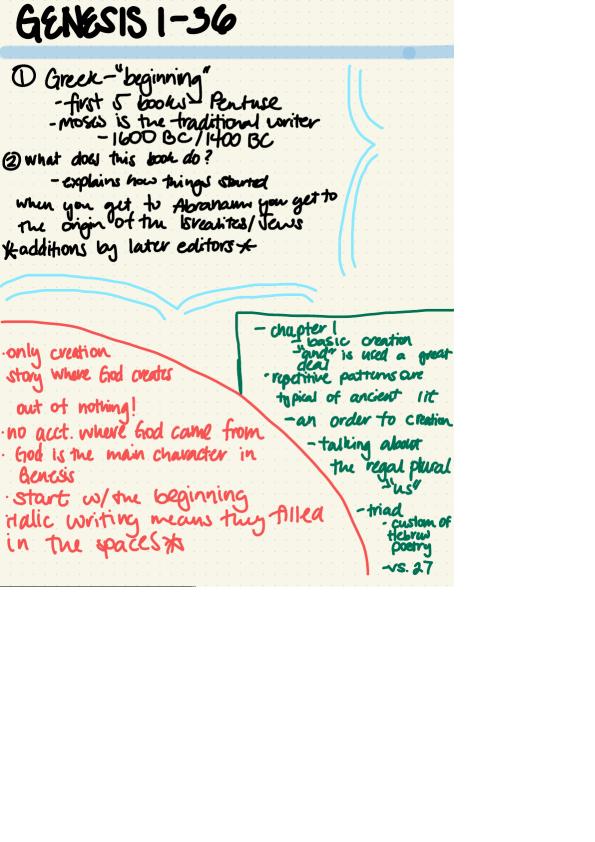 GENESIS 1-36
① Greek - "beginning"
- first 5 books Pentuse
- Moses is the traditional writer
- 1600 BC/1400 BC
② what does this book do?
- explains how things started
when you get to Abraham you get to
the origin of the Isrealites/Jews
*additions by later editors*
· only creation
story where God creates
out of nothing!
· no acct. where God came from
· God is the main character in
Genesis
· start w/ the beginning
italic writing means they filled
in the spaces*
- chapter 1
- basic creation
- "and" is used a great
deal
· repetitive patterns are
typical of ancient lit
- an order to creation
- talking about
the regal plural
"us"
- triad
· custom of
Hebrew
poetry
- vs. 27